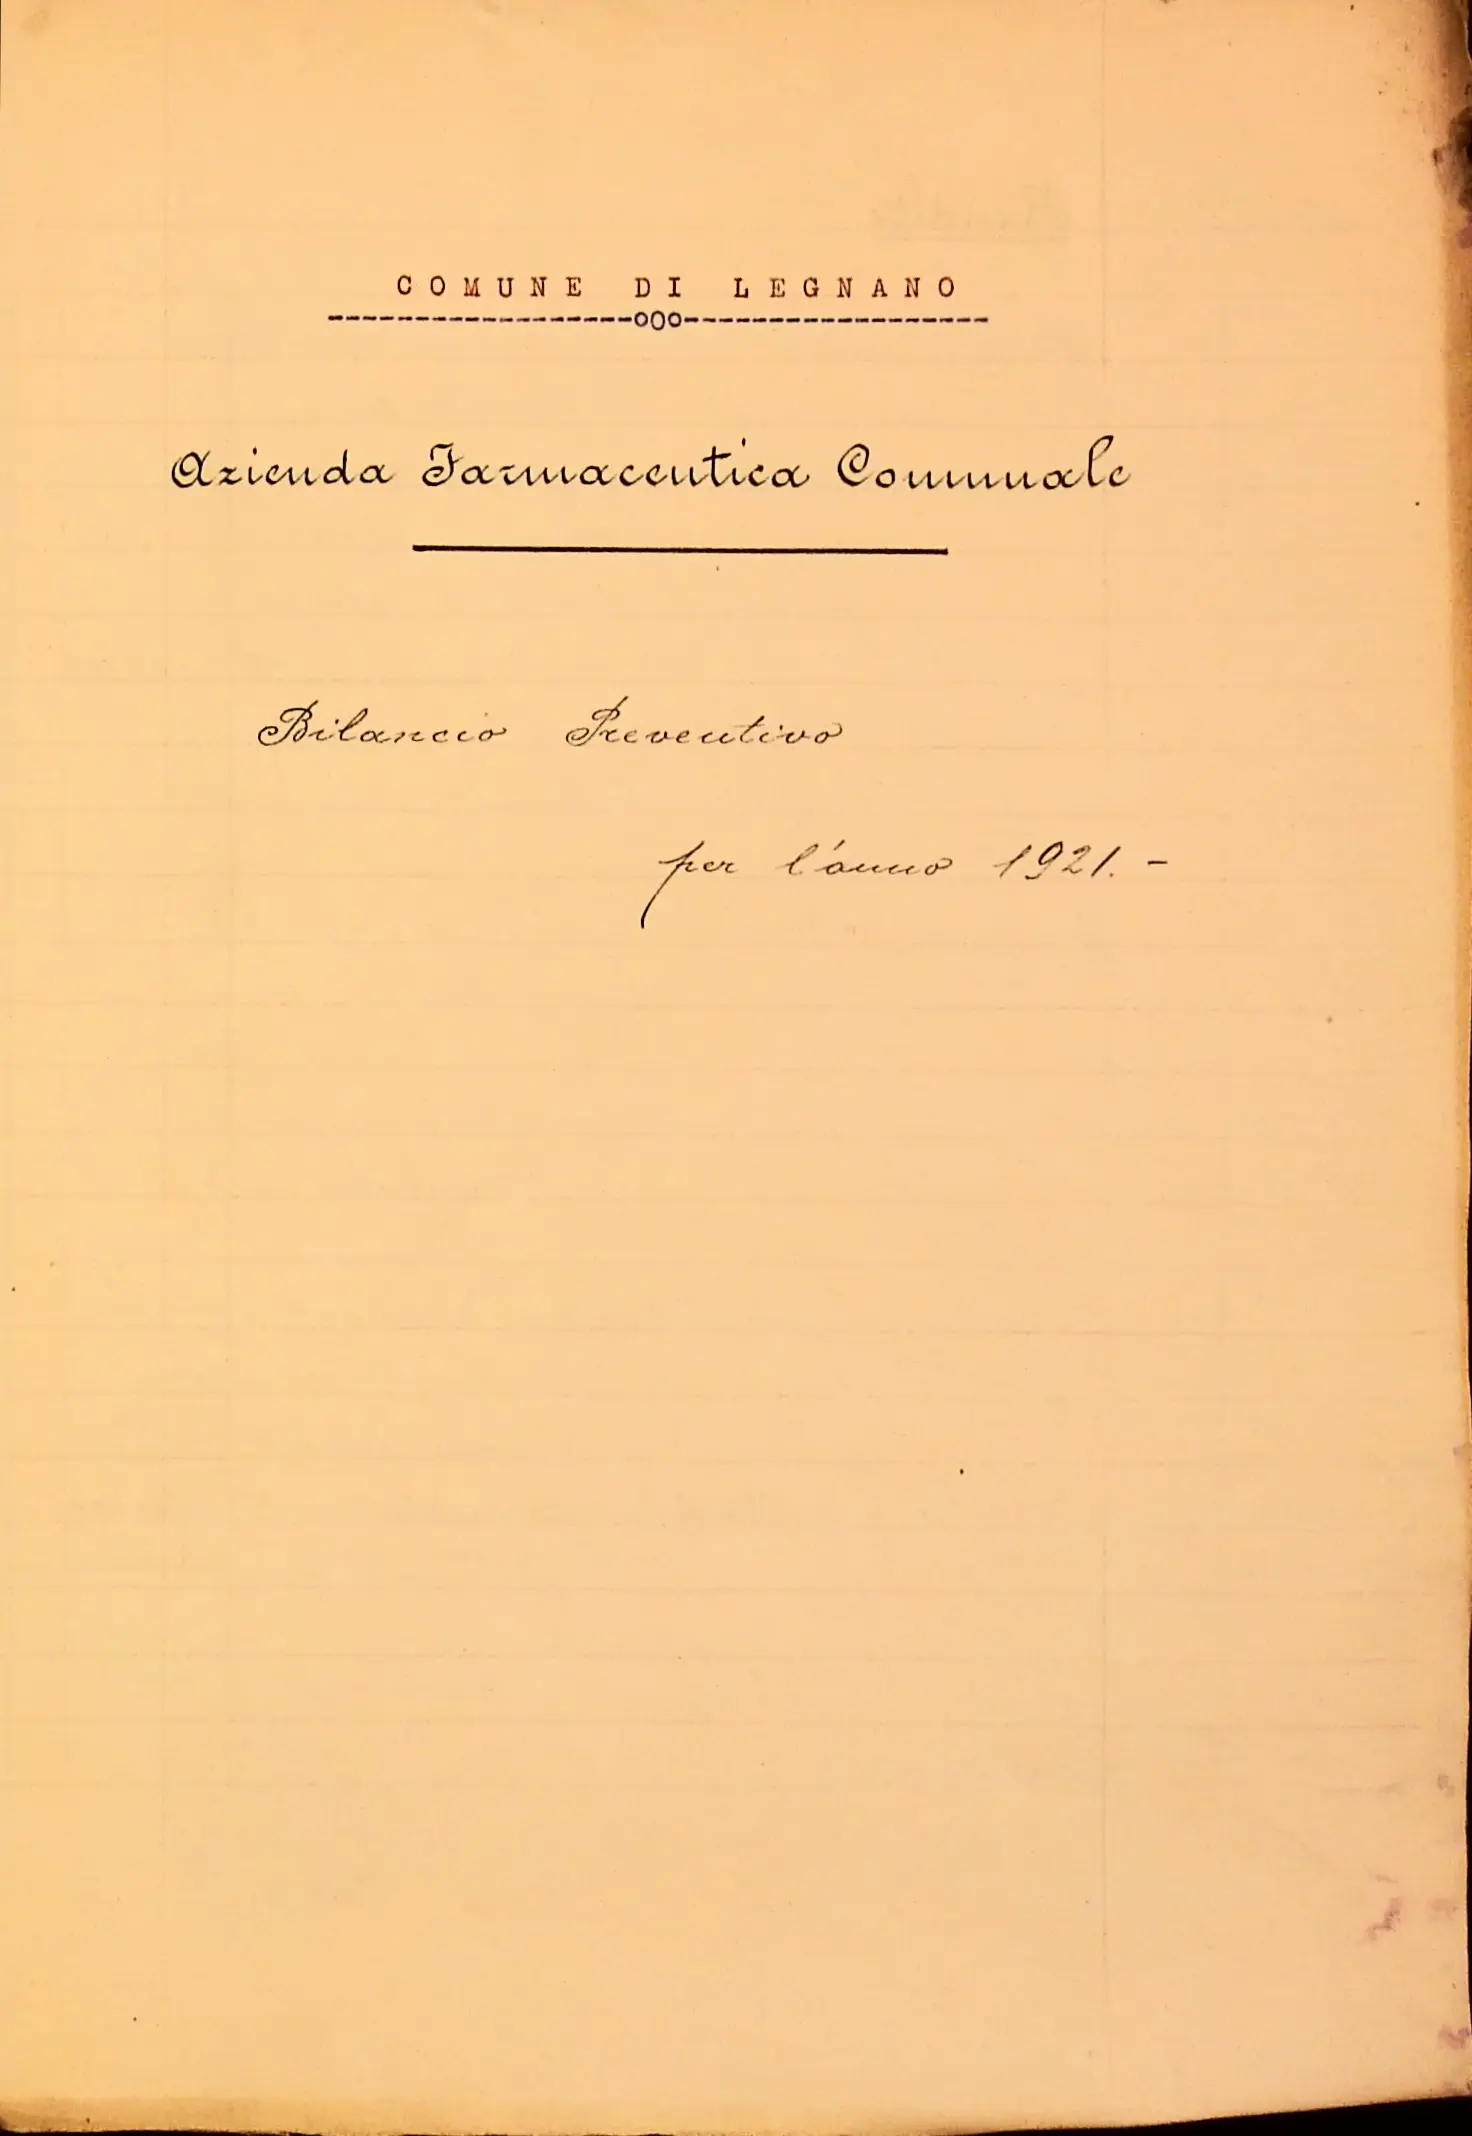 COMUNE DI LEGNANO
--------------------ooo--------------------
Azienda Farmaceutica Comunale
Bilancio Preventivo
per l'anno 1921. -